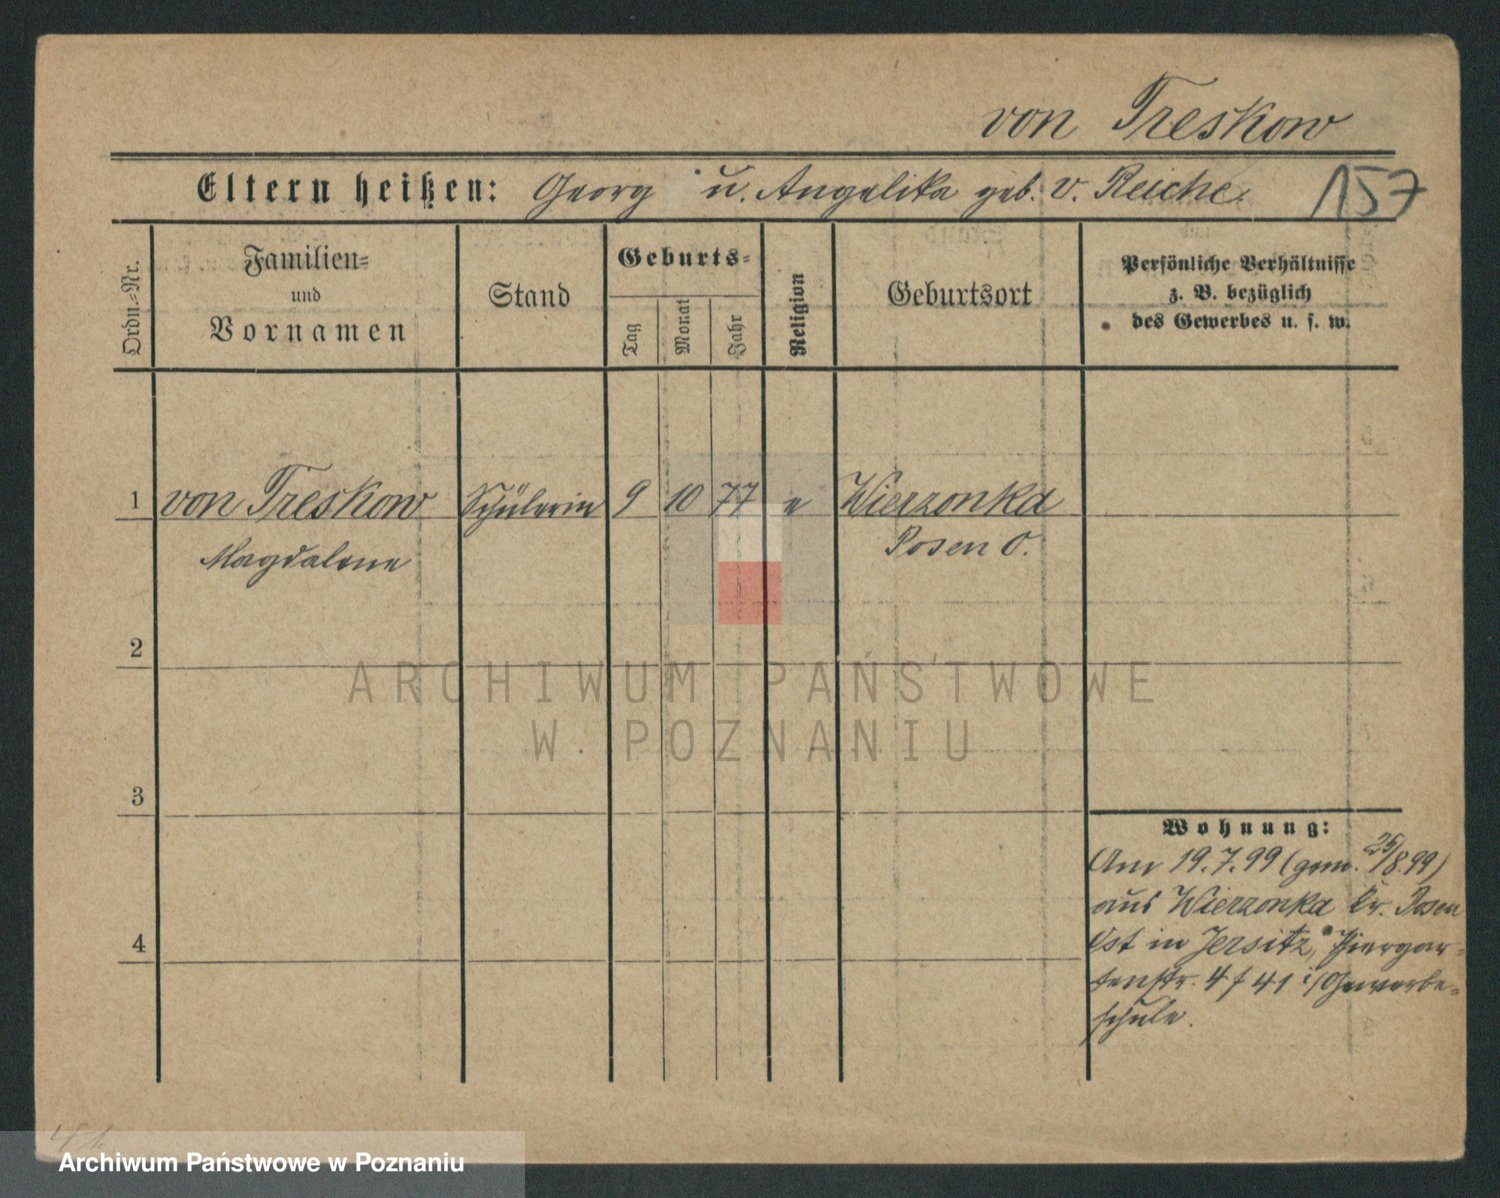 von Treskow
Eltern heißen: Georg u. Angelika geb. v. Reiche.
157
Ordn.-Nr.
Familien-
und
Vornamen
Stand
Geburts-
Tag
Monat
Jahr
Religion
Geburtsort
Persönliche Verhältnisse
z. B. bezüglich
des Gewerbes u. s. w.
1 von Treskow Schülerin 9 10 77 e Wierzonka
Magdalene Posen O.
2
3
4
Wohnung:
Am 19.7.99 (gem. 25/8.99)
aus Wierzonka Kr. Posen
Ost in Jersitz, Thiergar-
tenstr. 4 / 41 i/Gewerbe-
schule.
ARCHIWUM PAŃSTWOWE
W POZNANIU
Archiwum Państwowe w Poznaniu